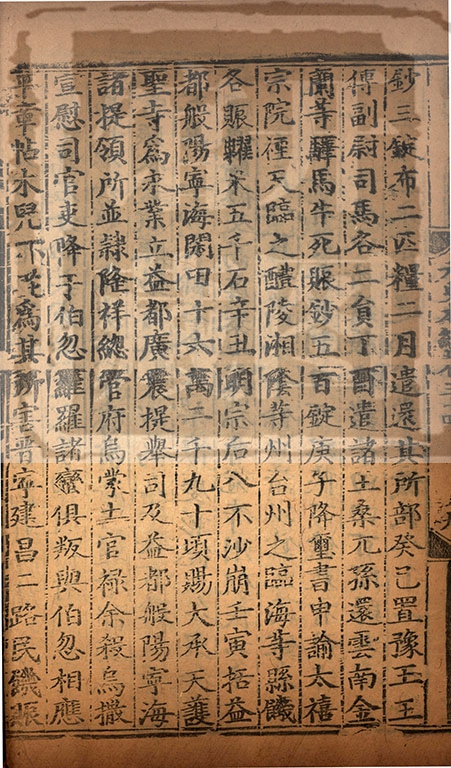 鈔三錠布二匹糧二月遣還其所部癸巳置豫王王
傅副尉司馬各二員丁酉遣諸王桑兀孫還雲南金
蘭等驛馬牛死賑鈔五百錠庚子降璽書申諭太禧
宗院徑天臨之醴陵湘陰等州台州之臨海等縣饑
各賑糶米五千石辛丑明宗后八不沙崩壬寅括益
都般陽寧海閑田十六萬二千九十頃賜大承天護
聖寺爲永業立益都廣農提舉司及益都般陽寧海
諸提領所並隸隆祥總管府烏蒙土官祿余殺烏撒
宣慰司官吏降于伯忽羅羅諸蠻俱叛與伯忽相應
平章帖木兒不花爲其所害晉寧建昌二路民饑賑